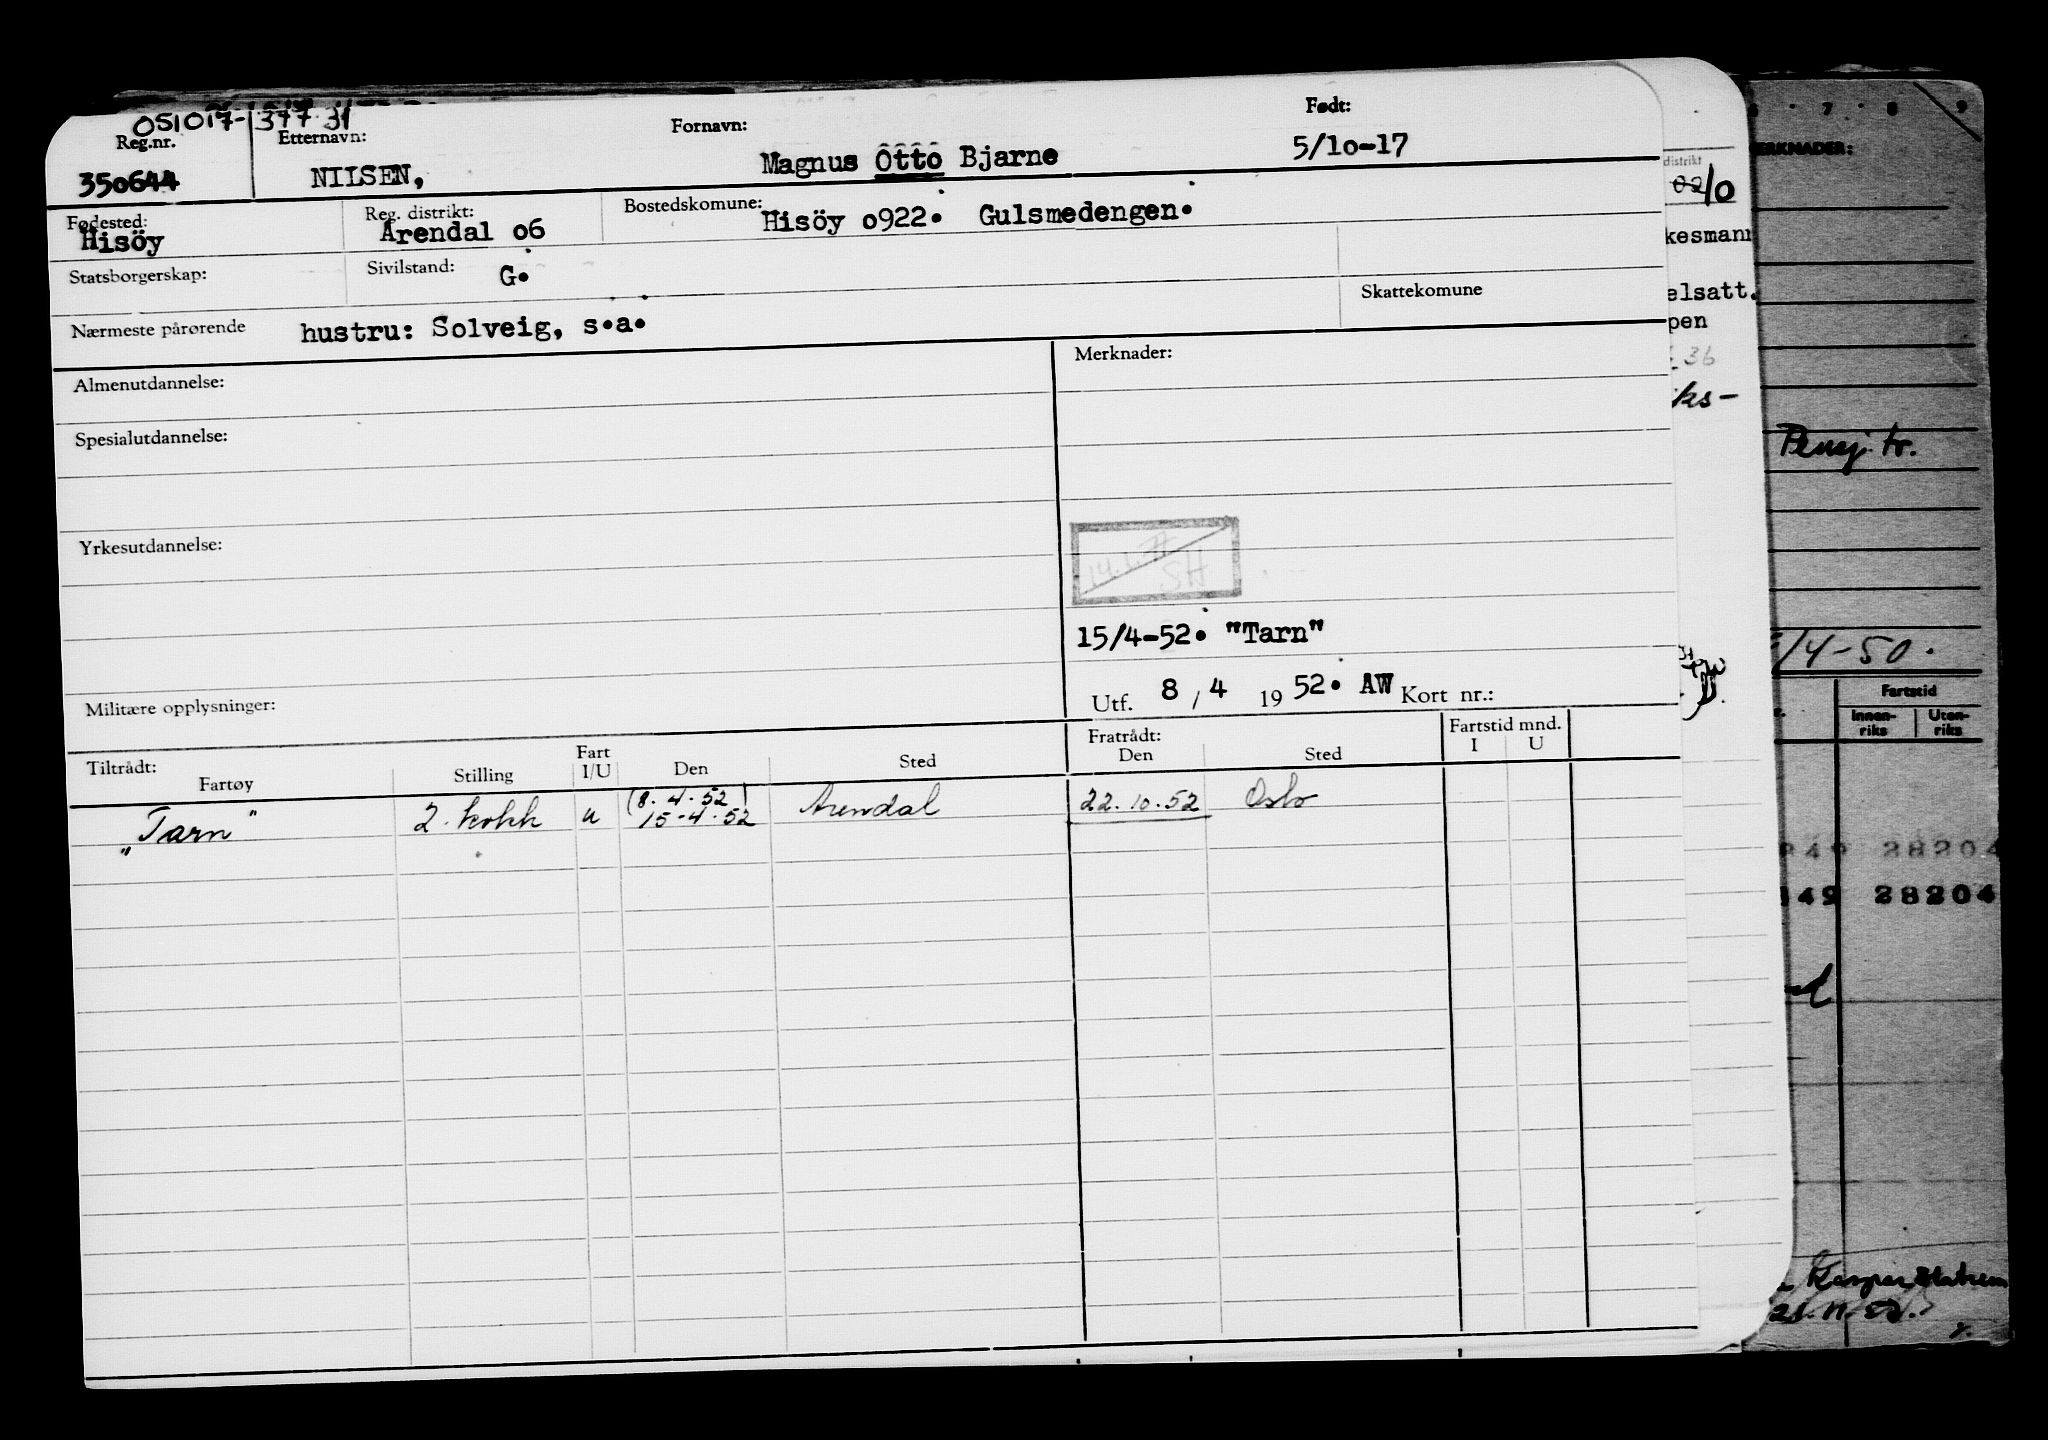 051017-377 31
Reg.nr. Etternavn: Fornavn: Født:
350644 NILSEN, Magnus Otto Bjarne 5/10-17
Fødested: Reg. distrikt: Bostedskomune:
Hisöy Arendal o6 Hisöy o922. Gulsmedengen.
Statsborgerskap: Sivilstand: G.
Skattekomune
Nærmeste pårørende hustru: Solveig, s.a.
Almenutdannelse: Merknader:
Spesialutdannelse:
Yrkesutdannelse:
SH
15/4-52. "Tarn"
Militære opplysninger: Utf. 8 / 4 19 52. AW Kort nr.:
Tiltrådt: Fratrådt: Fartstid mnd.
Fartøy Stilling Fart I/U Den Sted Den Sted I U
(8.4.52)
"Tarn" 2. kokk u 15-4.52 Arendal 22.10.52 Oslo
distrikt
02 10
kesmann
elsatt.
pen
36
ks-
6 7 8 9
ERKNADER:
Pensj. tr.
/4-50.
Fartstid
Innen-riks Uten-riks
849 28204
849 28204
Kasper
21.11.52.